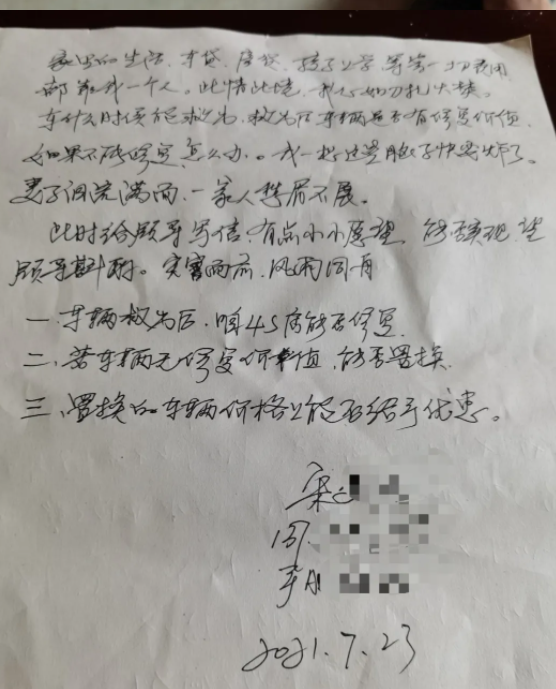 家里的生活、车贷、房贷、孩子上学等等一切费用
都靠我一个人。此情此境,我心如刀扎火燎。
车什么时候能救出,救出后车辆是否有修复价值,
如果不能修复怎么办。我一想这些脑子快要炸了。
妻子泪流满面,一家人愁眉不展。
此时给领导写信,有点小小愿望,能否实现,望
领导斟酌。灾害面前,风雨同舟
一、车辆救出后,咱4S店能否修复.
二、若车辆无修复价值,能否置换.
三、置换的车辆价格上能否给予优惠。
宋
2021.7.23